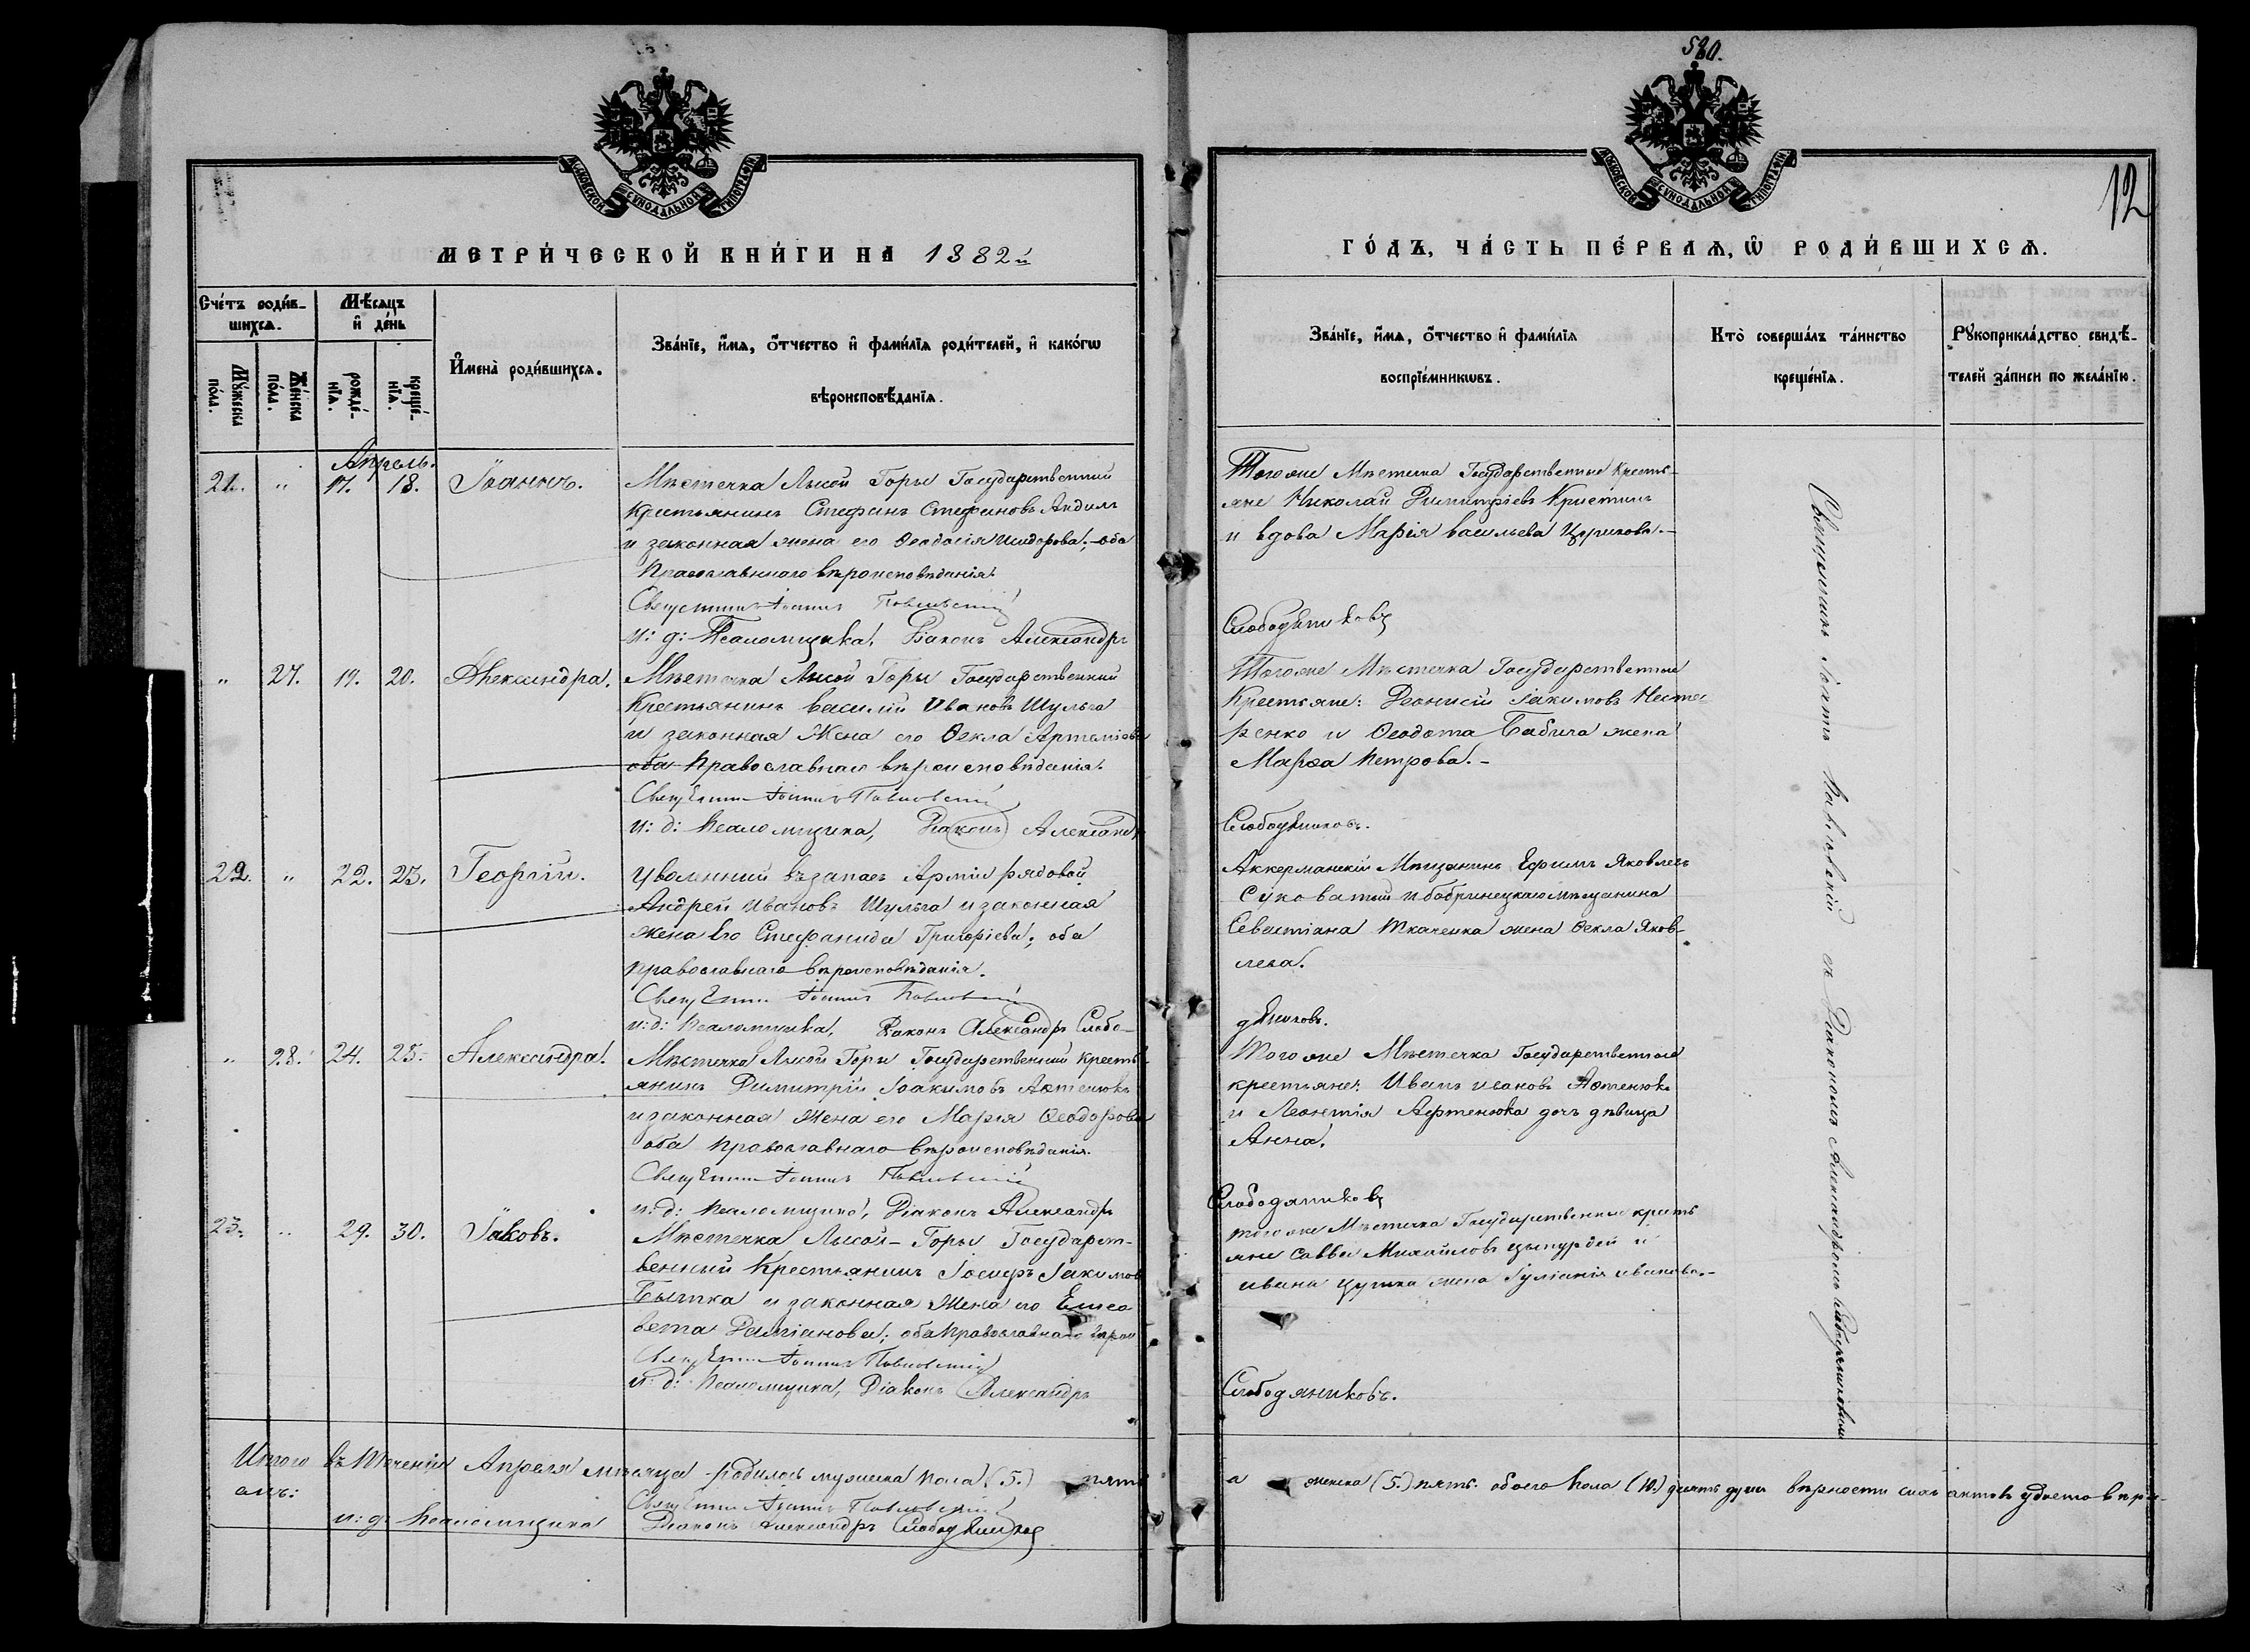 520.
12
МОСКОВСКОЙ СѴНОДАЛЬНОЙ ТИПОГРАФІИ
МОСКОВСКОЙ СѴНОДАЛЬНОЙ ТИПОГРАФІИ
МЕТРИ́ЧЕСКОЙ КНИ́ГИ НА 1882й
ГО́ДЪ, ЧА́СТЬ ПЕ́РВАѦ, Ѡ РОДИ́ВШИХСѦ.
Сче́тъ роди́вшихсѧ.
Мꙋ́жеска по́ла.
Же́нска по́ла.
Мѣ́сѧцъ и҆ де́нь
рожде́нїѧ.
креще́нїѧ.
И҆мена̀ роди́вшихсѧ.
Зва́нїе, и҆́мѧ, ѻ҆́тчество и҆ фами́лїѧ роди́телей, и҆ како́гѡ
вѣроисповѣ́данїѧ.
Зва́нїе, и҆́мѧ, ѻ҆́тчество и҆ фами́лїѧ
воспрїе́мникѡвъ.
Кто̀ соверша́лъ та́инство
креще́нїѧ.
Рꙋкоприкла́дство свидѣ́-
телей за́писи по жела́нїю.
Апрель.
21. " 17. 18. Іоаннъ.
Мѣстечка Лысой Горы Государственный
крестьянинъ Стефанъ Стефановъ
и законная жена его Ѳеодосія Исидорова; оба
Православнаго вѣроисповѣданія.
Священникъ Іоаннъ Павловскій
и: д: Псаломщика, Діаконъ Александръ
Тогоже Мѣстечка Государственные Кресть-
яне Николай Димитріевъ
и вдова Марія Васильева
Слободяниковъ
" 27. 19. 20. Александра.
Мѣстечка Лысой Горы Государственный
Крестьянинъ Василій Ивановъ Шульга
и законная Жена его Ѳекла Артеміева
оба Православнаго вѣроисповѣданія.
Священникъ Іоаннъ Павловскій
и: д: Псаломщика, Діаконъ Александръ
Тогоже Мѣстечка Государственные
Крестьяне: Діонисій Іакимовъ Несте
ренко и Ѳеодота Бабича жена
Марѳа Петрова. -
Слободяниковъ.
22. " 22. 23. Георгій.
Уволенный въ запасъ Арміи рядовой
Андрей Ивановъ Шульга и законная
жена его Стефанида Григоріева; оба
православнаго вѣроисповѣданія.
Священникъ Іоаннъ Павловскій
и: д: Псаломщика, Діаконъ Александръ Слобо-
Аккерманскій Мѣщанинъ Ефимъ Яковлевъ
Суковатый и бобринецкаго мѣщанина
Севастіана Ткаченка жена Ѳекла Яков-
лева.
дяниковъ.
" 28. 24. 25. Александра.
Мѣстечка Лысой Горы Государственный кресть
янинъ Димитрій Іоакимовъ
и законная Жена его Марія Ѳеодорова
оба православнаго вѣроисповѣданія.
Священникъ Іоаннъ Павловскій
и: д: Псаломщика, Діаконъ Александръ
Тогоже Мѣстечка Государственные
крестьяне: Иванъ Ивановъ
и Леонтія Афтенюка дочь дѣвица
Анна.
Слободяниковъ
23. " 29. 30. Іаковъ.
Мѣстечка Лысой-Горы Государст-
венный Крестьянинъ Іосифъ Іакимовъ
и законная Жена его Елиса
вета Даміанова; оба православнаго вѣрои
Священникъ Іоаннъ Павловскій
и: д: Псаломщика, Діаконъ Александръ
тогоже Мѣстечка Государственные кресть
яне Савва Михайловъ и
Ивана жена Іуліанія Иванова.-
Слободяниковъ.
Священникъ Іоаннъ Павловскій съ Діакономъ Александромъ
Итого въ теченіи Апреля мѣсяца родилось мужеска пола (5.) пять
а женска (5.) пять. обоего пола (10.) десять душъ вѣрности сихъ актовъ удостовѣря-
емъ:
Священникъ Іоаннъ Павловскій
и: д: Псаломщика Діаконъ Александръ Слободяниковъ